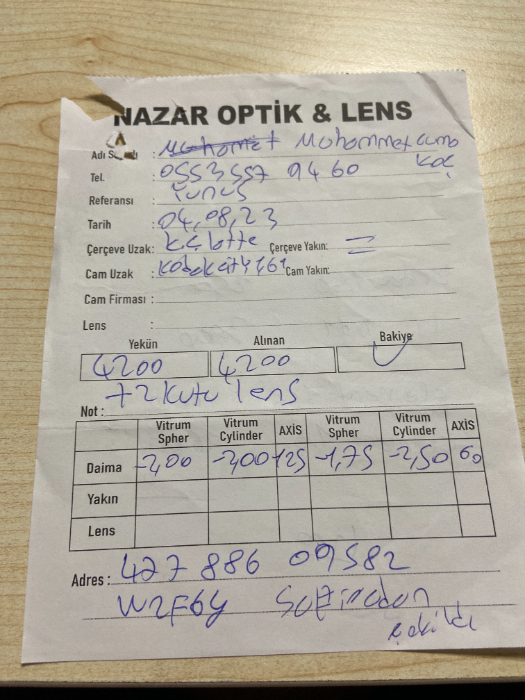 NAZAR OPTİK & LENS
Adı S : Muhammet cuma
Koç
Tel. : 0553 557 94 60
Referansı : Yunus
Tarih : 04,08,23
Çerçeve Uzak: Çerçeve Yakın: =
Cam Uzak : Cam Yakın:
Cam Firması :
Lens :
Yekün Alınan Bakiye
4200 4200
+2 kutu lens
Not :
Vitrum Spher Vitrum Cylinder AXİS Vitrum Spher Vitrum Cylinder AXİS
Daima -2,00 -2,00 125 -1,75 -2,50 60
Yakın
Lens
Adres : 427 886 09582
W2F6Y
çekildi